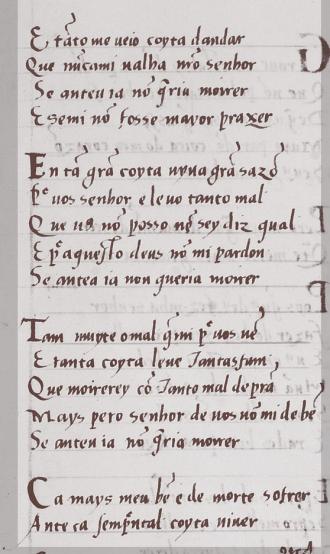 E tãto me veio coyta dandar
Que nũcami ualha nr̃o senhor
Se anteu ia nõ q̃ria moirer
E semi nõ fosse mayor prazer
En tã grã coyta uyuagrã sazõ
P̃ uos senhor e leuo tanto mal
Que uꝯ nõ posso nẽ sey diz qual
E p̃ aquesto deus nõ mi pardon
Se antea ia non queria moirer
Tam muyte o mal q̃mi p̃ uos uẽ
E tanta coyta leue Tantasfum
Que moirerey cõ Tanto mal de prã
Mays pero senhor de uos nõ mi de bẽ
Se anteu ia nõ q̃ria moirer
Ca mays meu bẽ e de morte sofrer
Ante ca sempr̃tal coyta niuer